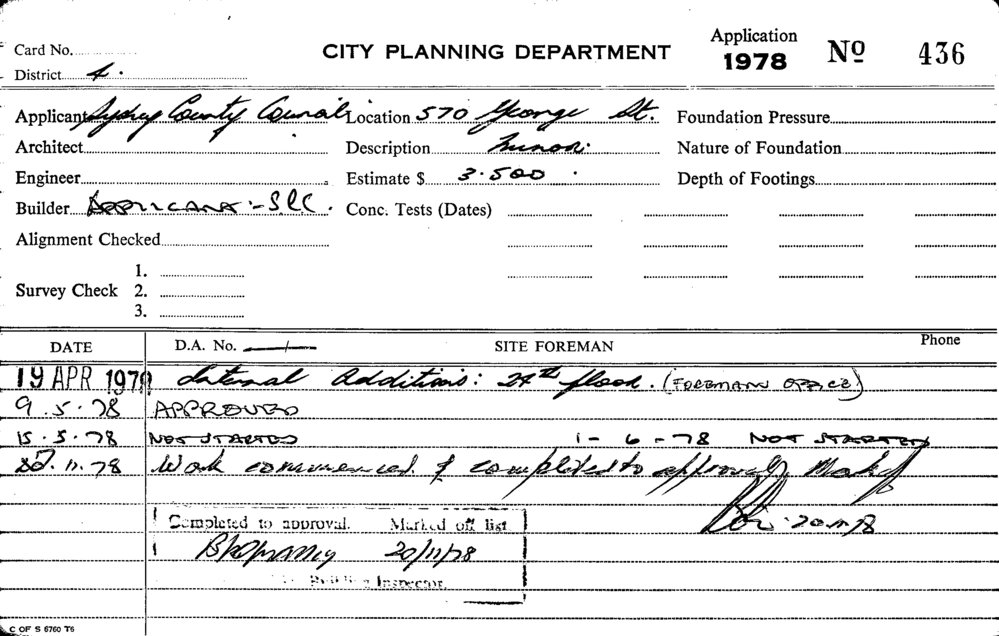 Application
Card No. CITY PLANNING DEPARTMENT 1978 Nº 436
District 4.
Applicant Sydney County Council Location 570 George St. Foundation Pressure
Architect Description Minor. Nature of Foundation
Engineer Estimate $ 3.500. Depth of Footings
Builder APPLICANT:- S.C.C. Conc. Tests (Dates)
Alignment Checked
1.
Survey Check 2.
3.
DATE D.A. No. SITE FOREMAN Phone
19 APR 1978 Internal Additions: 24th floor. (FOREMANS OFFICE)
9.5.78 APPROVED
15.5.78 NOT STARTED 1-6-78 NOT STARTED
20.11.78 Work commenced & completed to approval. Mark off
20.11.78
Completed to approval. Marked off list
20/11/78
Building Inspector.
C OF S 6760 T6